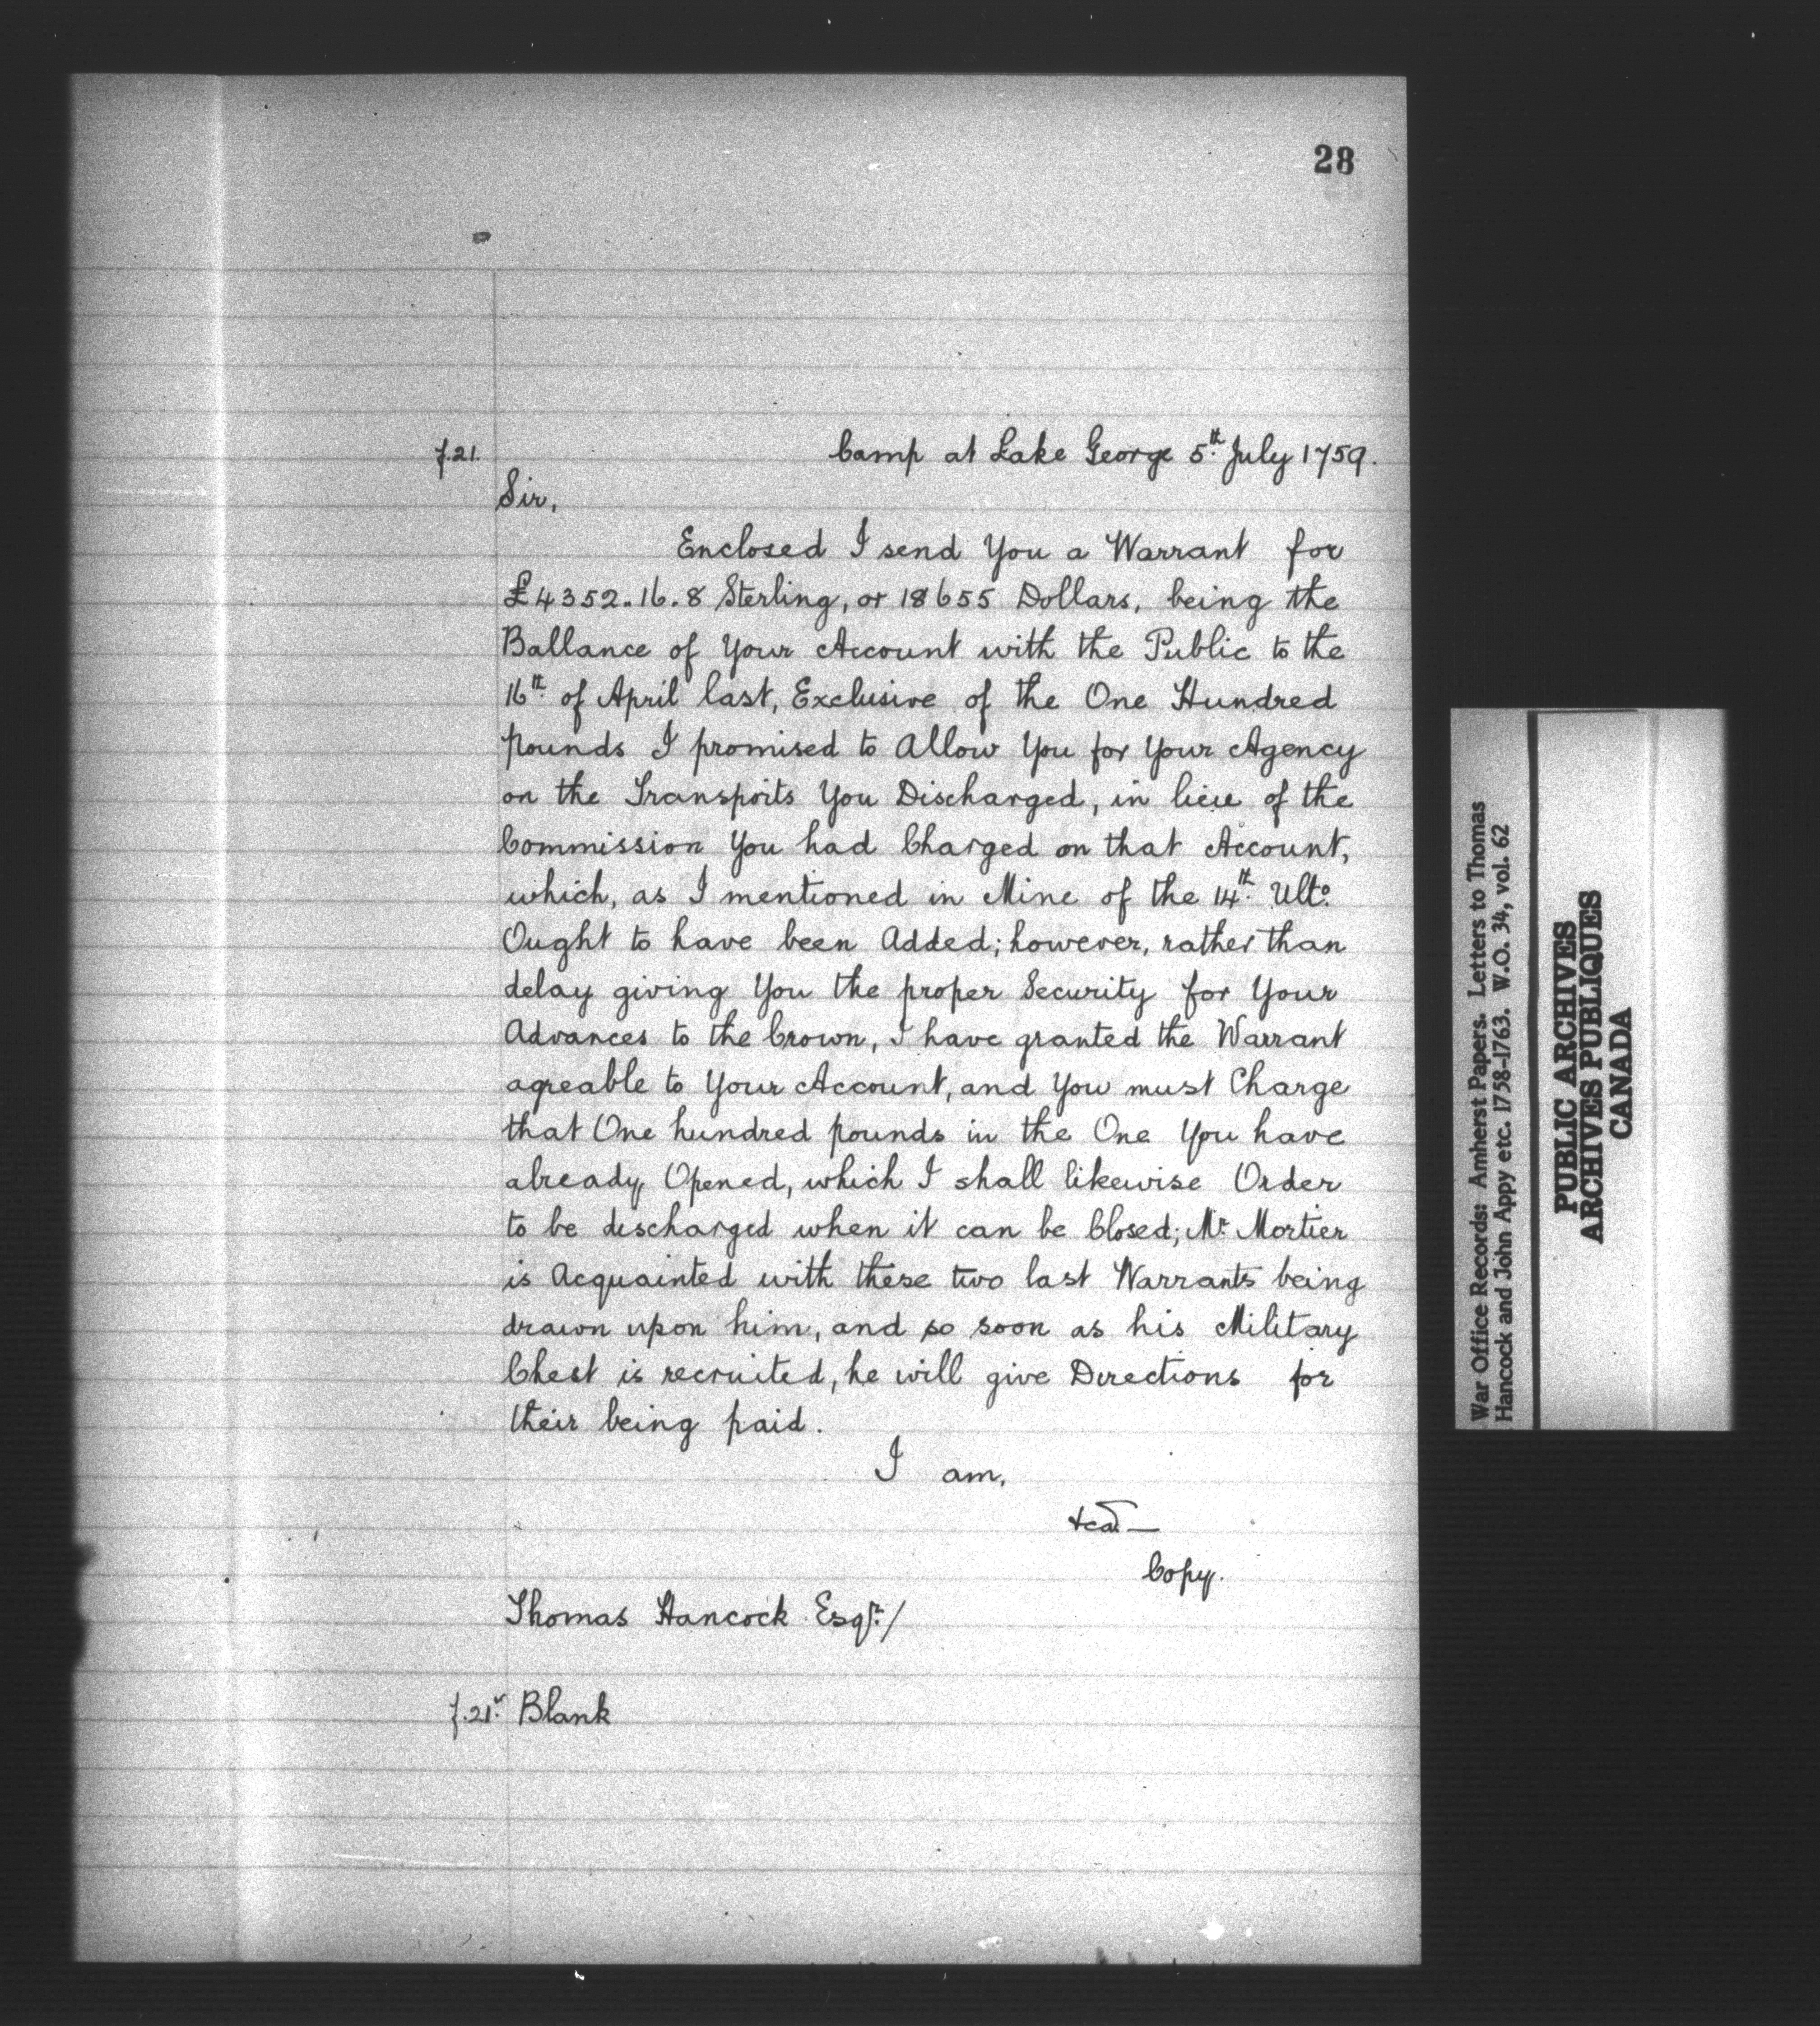 28
f.21.
Camp at Lake George 5th. July 1759.
Sir,
Enclosed I send You a Warrant for
£4352.16.8 Sterling, or 18655 Dollars, being the
Ballance of Your Account with the Public to the
16th. of April last, Exclusive of the One Hundred
pounds I promised to Allow You for Your Agency
on the Transports You Discharged, in lieu of the
Commission You had Charged on that Account,
which, as I mentioned in Mine of the 14th. Ulto.
Ought to have been Added; however, rather than
delay giving You the proper Security for Your
Advances to the Crown, I have granted the Warrant
agreable to Your Account, and You must Charge
that One hundred pounds in the One You have
already Opened, which I shall likewise Order
to be discharged when it can be Closed; Mr. Mortier
is Acquainted with these two last Warrants being
drawn upon him, and so soon as his Military
Chest is recruited, he will give Directions for
their being paid.
I am,
&ca. —
Copy.
Thomas Hancock Esqr./
f.21v. Blank
War Office Records: Amherst Papers. Letters to Thomas
Hancock and John Appy etc. 1758-1763. W.O. 34, vol. 62
PUBLIC ARCHIVES
ARCHIVES PUBLIQUES
CANADA